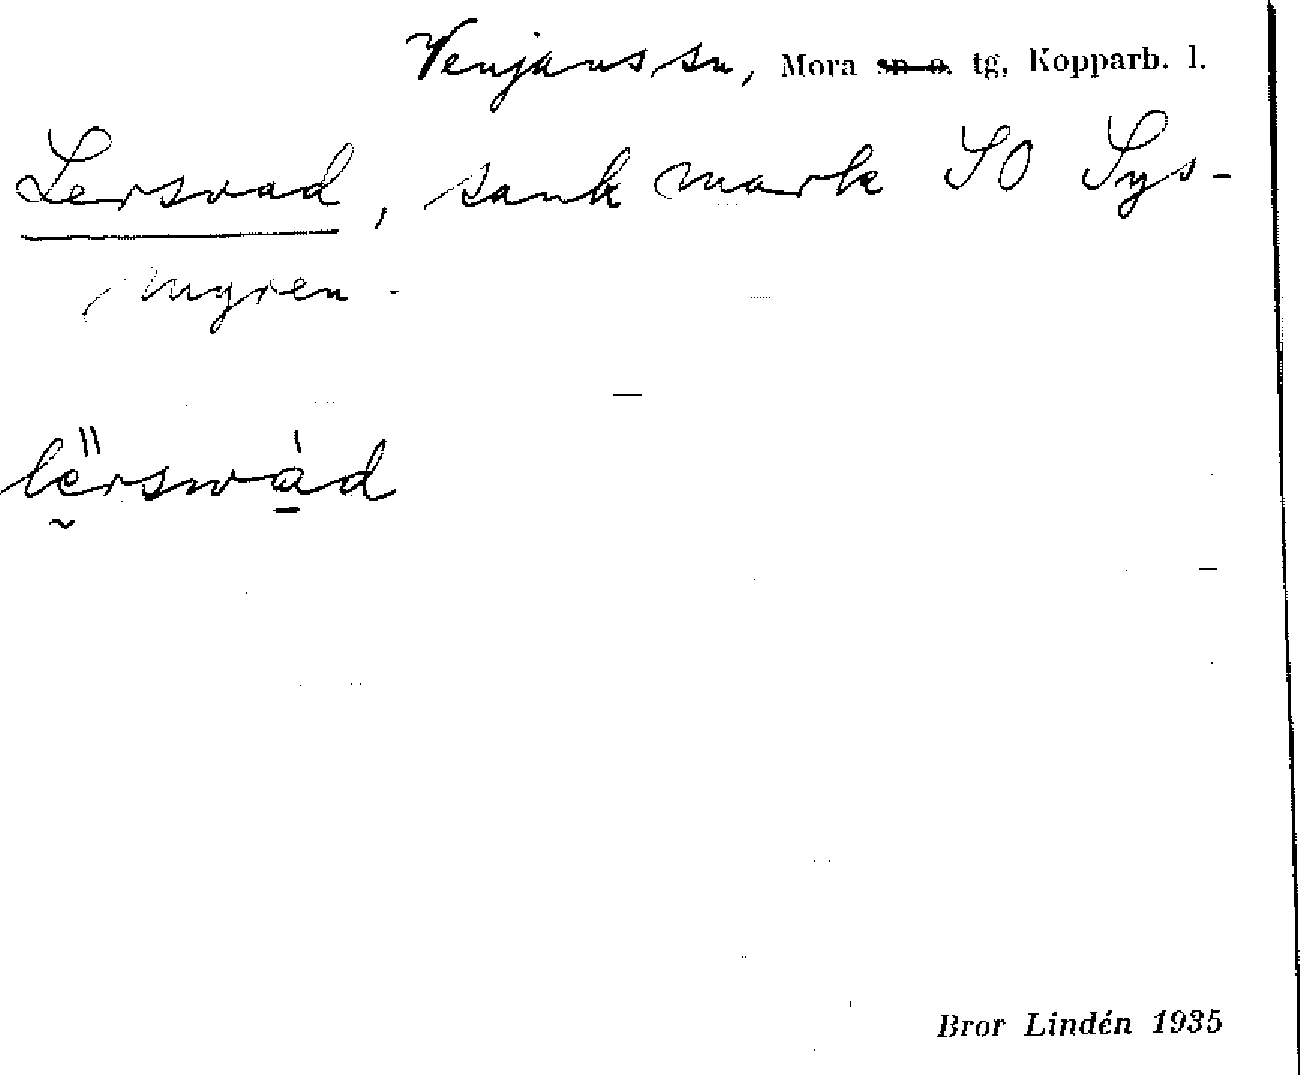 Venjans sn, Mora sn o. tg, Kopparb. l.
Lersvad, sank mark SO Sys-
myren.
lerswad
Bror Lindén 1935